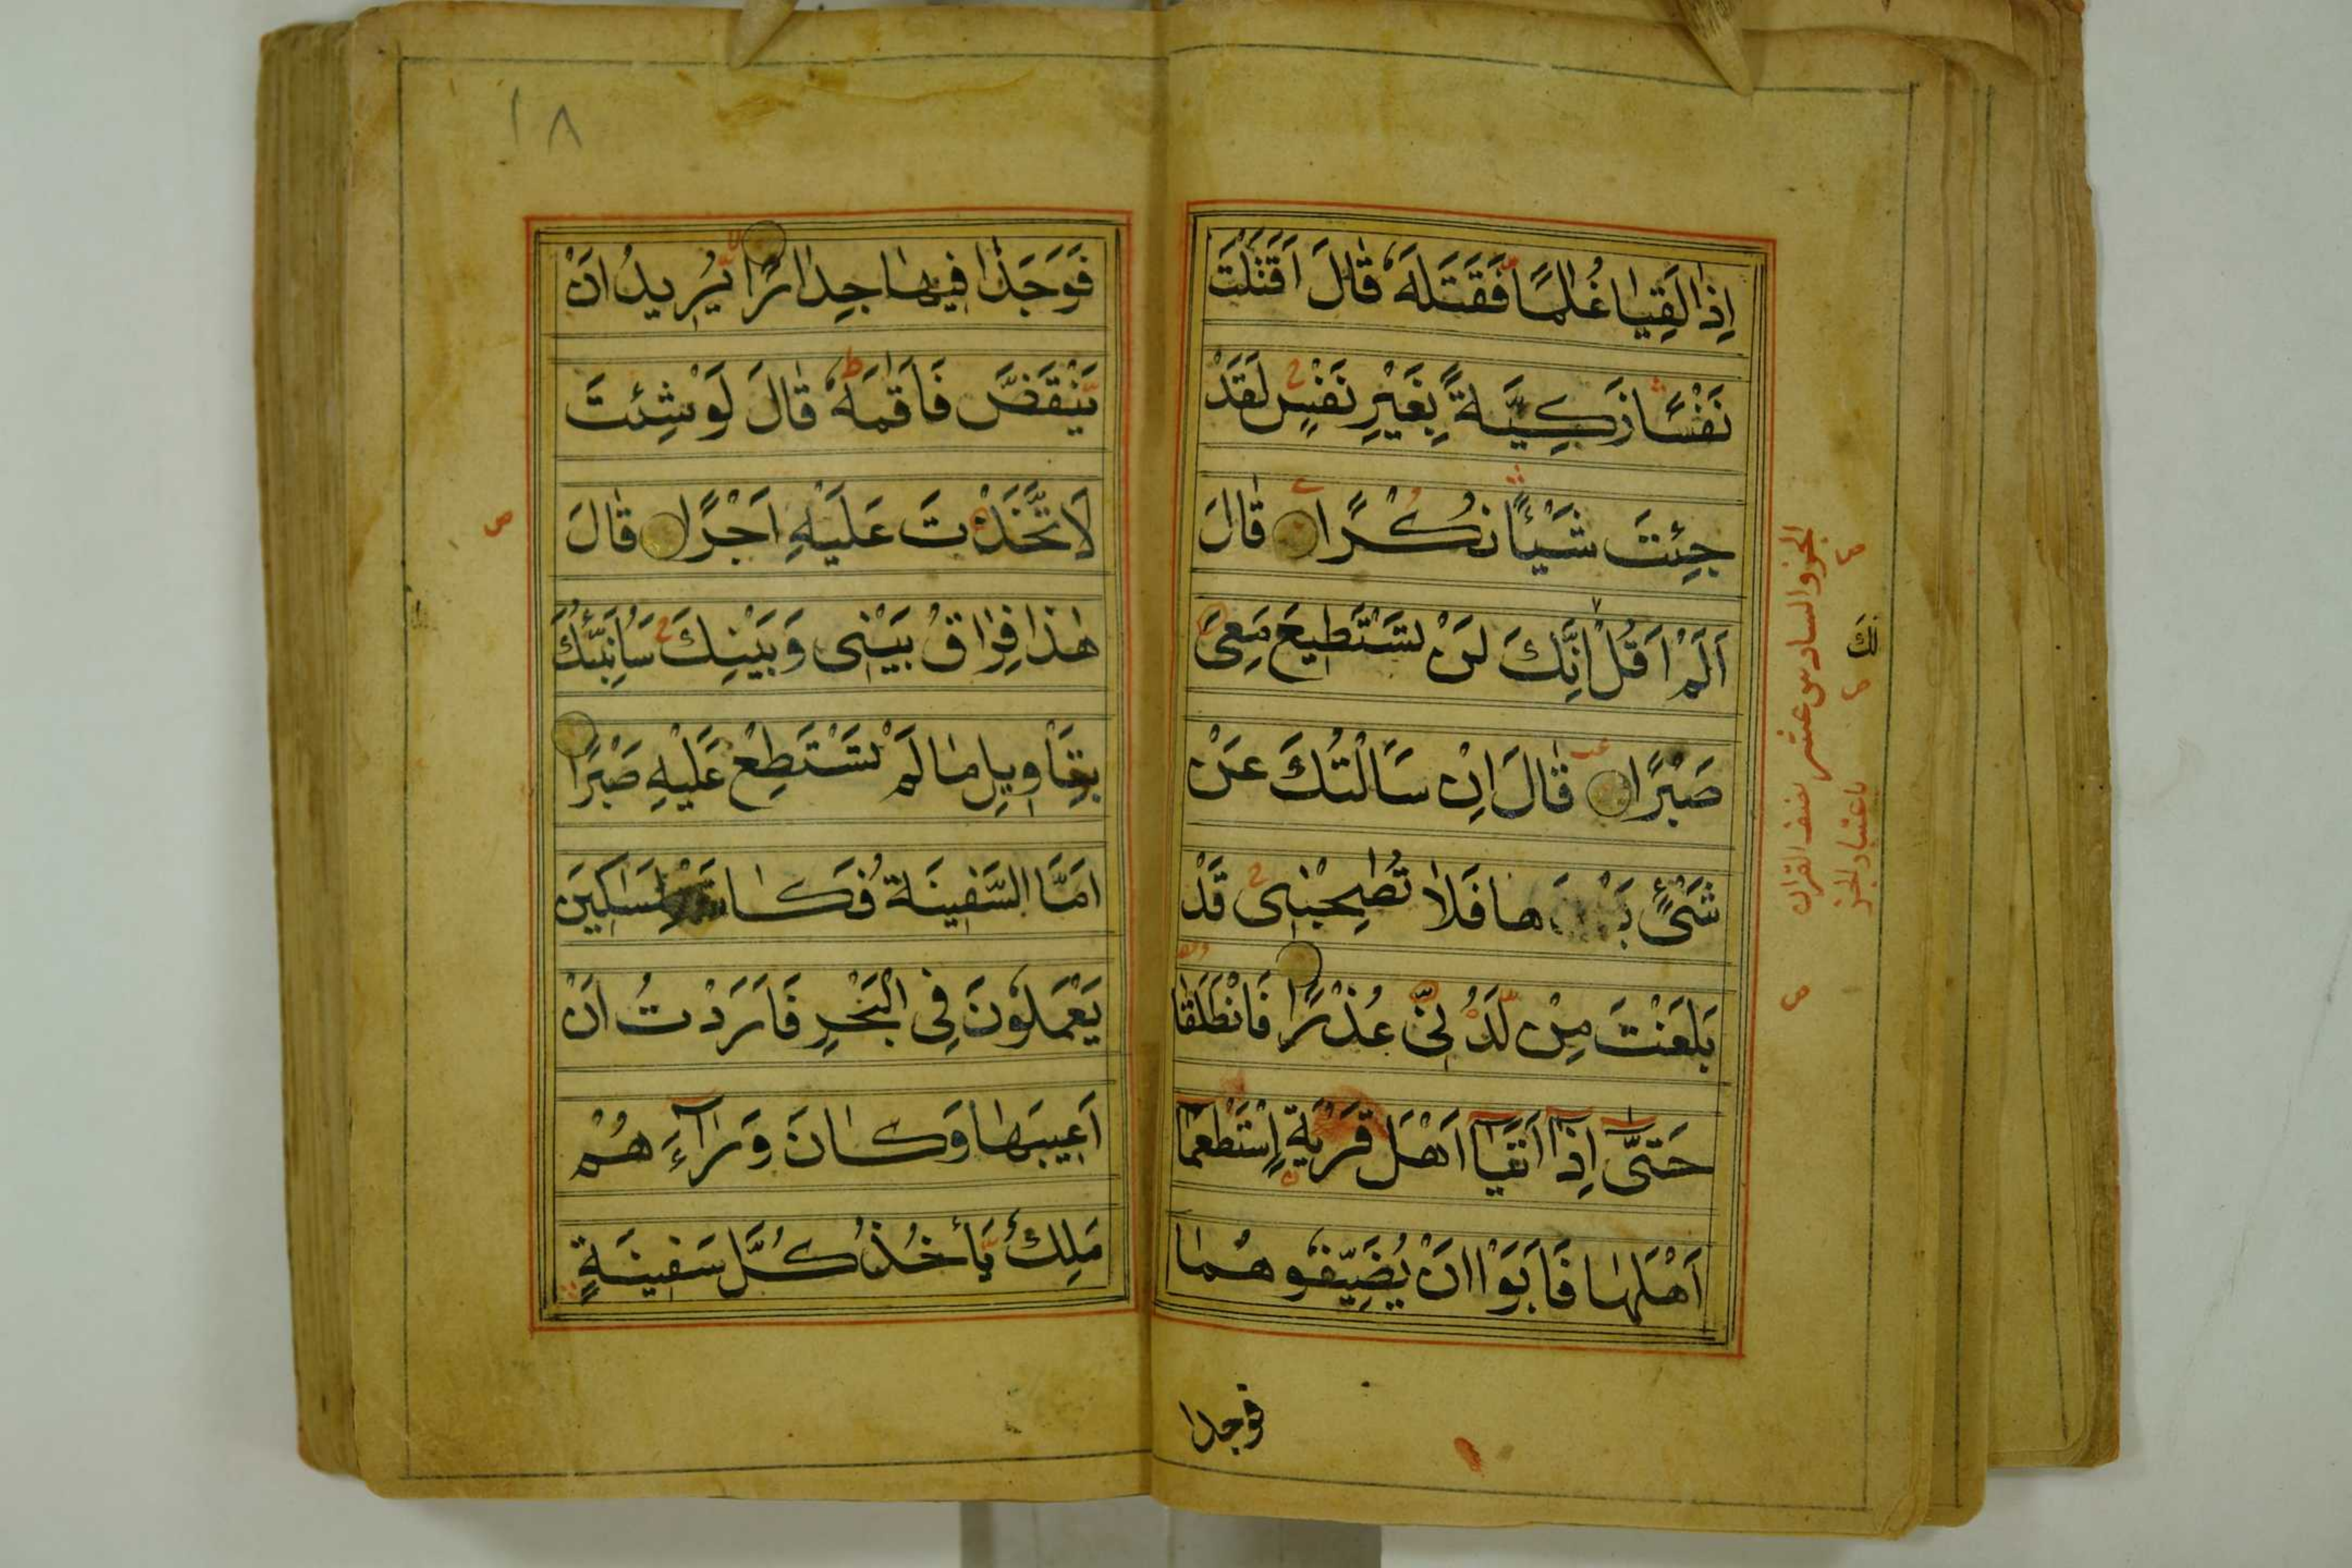 اِذَا لَقِيَا غُلٰمًا فَقَتَلَهٗ قَالَ اَقَتَلْتَ
نَفْسًا زَكِيَّةً بِغَيْرِ نَفْسٍ لَقَدْ
جِئْتَ شَيْئًا نُكْرًا قَالَ
اَلَمْ اَقُلْ اِنَّكَ لَنْ تَسْتَطِيعَ مَعِىَ
صَبْرًا قَالَ اِنْ سَاَلْتُكَ عَنْ
شَىْءٍ هَا فَلَا تُصٰحِبْنِى قَدْ
بَلَغْتَ مِنْ لَدُنِّى عُذْرًا فَانْطَلَقَا
حَتّٰى اِذَا اَتَيَا اَهْلَ قَرْيَةٍ اِسْتَطْعَمَا
اَهْلَهَا فَاَبَوْا اَنْ يُضَيِّفُوهُمَا
فوجدا
الجزو السادس عشر نصف القران
باعتبار الجز
١٨
فَوَجَدَا فِيهَا جِدَارًا يُرِيدُ اَنْ
يَنْقَضَّ فَاَقَامَهٗ قَالَ لَوْ شِئْتَ
لَاتَّخَذْتَ عَلَيْهِ اَجْرًا قَالَ
هٰذَا فِرَاقُ بَيْنِى وَبَيْنِكَ سَاُنَبِّئُكَ
بِتَاْوِيلِ مَا لَمْ تَسْتَطِعْ عَلَيْهِ صَبْرًا
اَمَّا السَّفِينَةُ فَكَانَتْ لِمَسَاكِينَ
يَعْمَلُونَ فِى الْبَحْرِ فَاَرَدْتُ اَنْ
اَعِيبَهَا وَكَانَ وَرَآءَ هُمْ
مَلِكٌ يَأْخُذُ كُلَّ سَفِينَةٍ